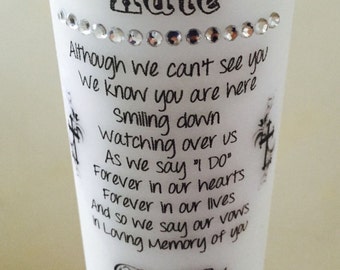 Although we can't see you
We know you are here
Smiling down
Watching over us
As we say "I DO"
Forever in our hearts
Forever in our lives
And so we say our vows
in Loving Memory of you